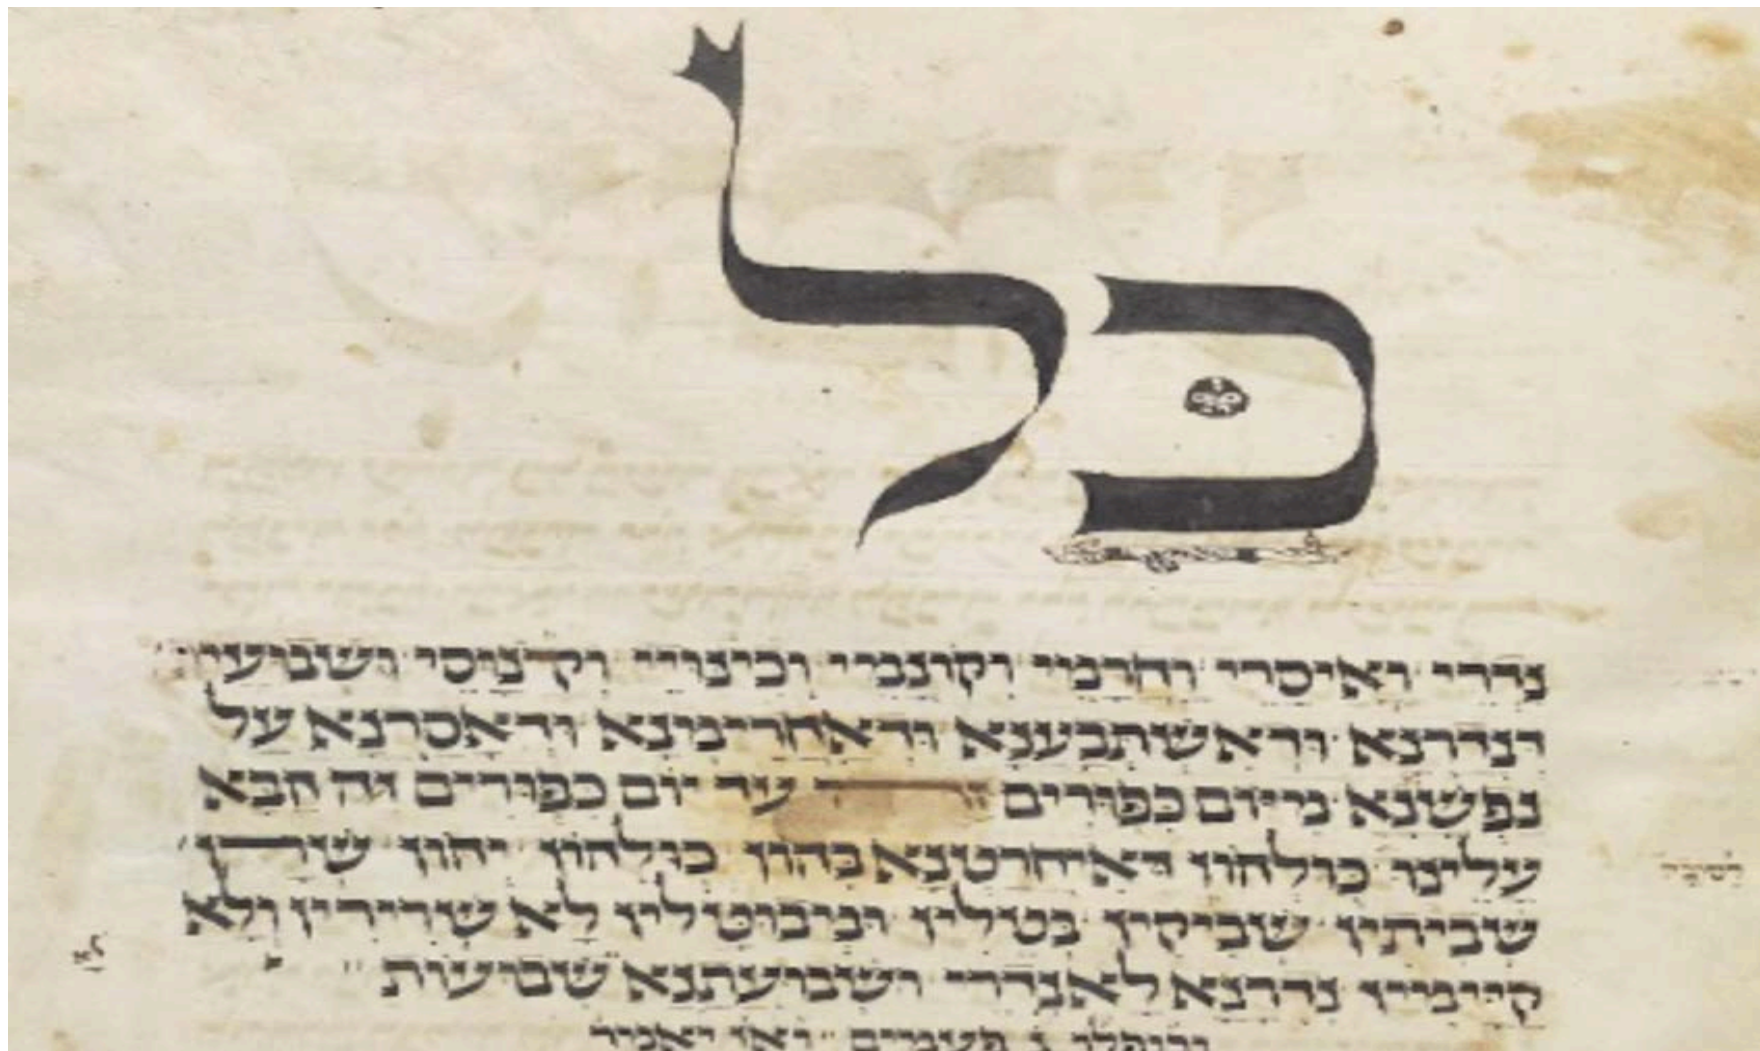 כל
נדרי ואיסרי וחרמי וקונמי וכינויי וקינוסי ושבועי
דנדרנא ודאשתבענא ודאחרימנא ודאסרנא על
נפשנא מיום כפורים עד יום כפורים זה הבא
עלינו כולהון דאיחרטנא בהון כולהון יהון שרן
שביתין שביקין בטלין ומבוטלין לא שרירין ולא
קיימין נדרנא לא נדרי ושבועתנא שבועות
פעמים ואז יאמר